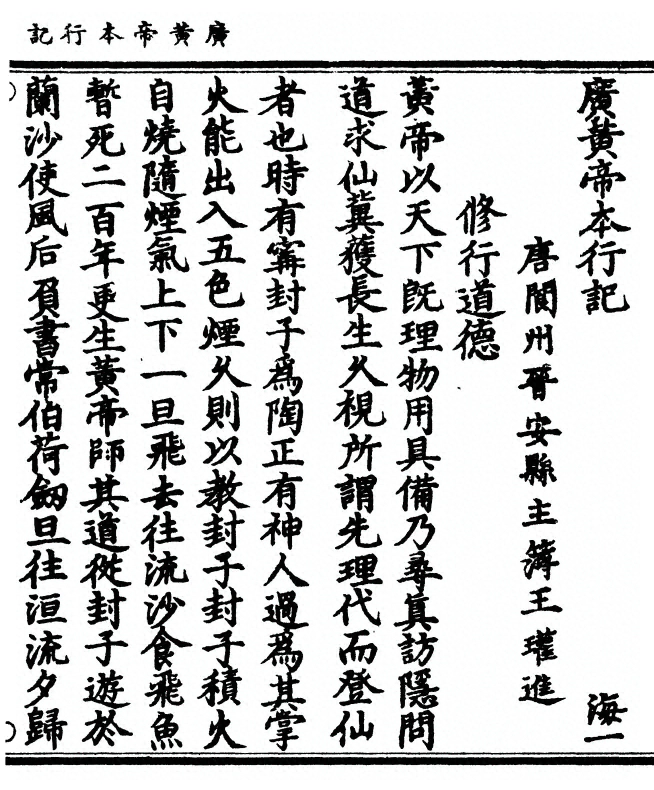 廣黃帝本行記
廣黃帝本行記
海一
唐閬州晉安縣主簿王瓘進
修行道德
黃帝以天下旣理物用具備乃尋眞訪隱問
道求仙冀獲長生久視所謂先理代而登仙
者也時有甯封子爲陶正有神人過爲其掌
火能出入五色煙久則以教封子封子積火
自燒隨煙氣上下一旦飛去往流沙食飛魚
暫死二百年更生黃帝師其道從封子遊於
蘭沙使風后負書常伯荷劒旦往洹流夕歸